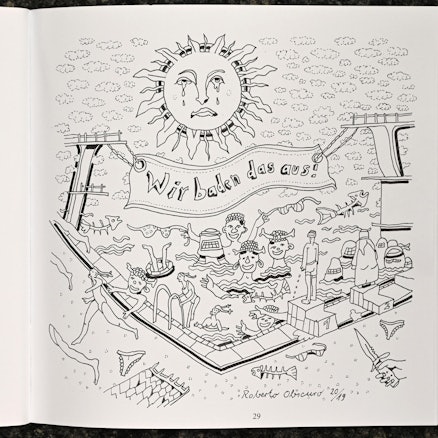 Wir baden das aus!
Roberto Obscuro 20/19
29